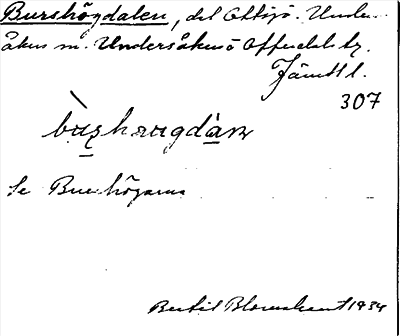 Burshögdalen, del Ottsjö. Under-
åkers sn. Undersåkers o Offerdals tg.
Jämtl l.
307
Se Burshögarna
Bertil Blomstrand 1934